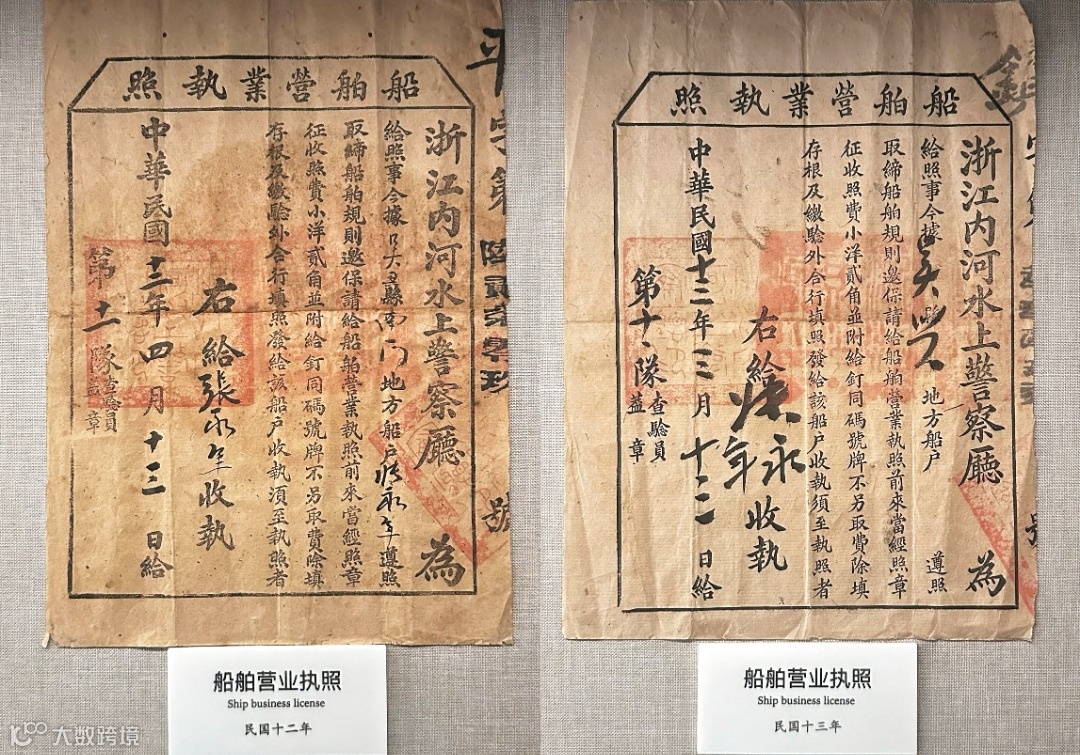 船舶營業執照
浙江内河水上警察廳為
給照事今據縣南门地方船戶張永年遵照
取締船舶規則邀保請給船舶營業執照前來當經照章
征收照費小洋貳角並附給釘同碼號牌不另取費除填
存根及繳驗外合行填照發給該船户收執須至執照者
右給張永年收執
中華民國十二年四月十三日給
第十一隊查驗員蓋章
字第陸貳柒零玖號
船舶營業執照
浙江内河水上警察廳為
給照事今據地方船戶遵照
取締船舶規則邀保請給船舶營業執照前來當經照章
征收照費小洋貳角並附給釘同碼號牌不另取費除填
存根及繳驗外合行填照發給該船户收執須至執照者
右給張永年收執
中華民國十三年三月十二日給
第十一隊查驗員蓋章
號
船舶营业执照
Ship business license
民国十二年
船舶营业执照
Ship business license
民国十三年
大数跨境